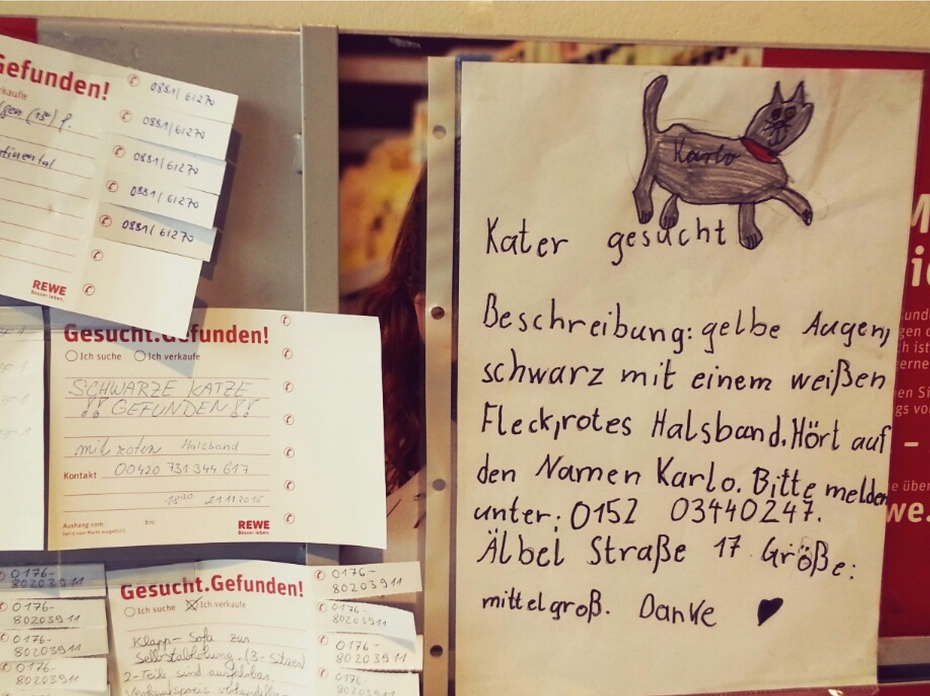 Gefunden!
0881/61270
0881/61270
0881/61270
0881/61270
0881/61270
REWE
Besser leben.
Gesucht.Gefunden!
Ich suche Ich verkaufe
SCHWARZE KATZE
!! GEFUNDEN !!
mit roten Halsband
Kontakt 00420 731 344 617
18³⁰ 21.11.2015
Aushang vom: bis:
REWE
Besser leben.
0176-
80203911
0176-
80203911
0176-
80203911
0176-
Gesucht.Gefunden!
Ich suche Ich verkaufe
Klapp-Sofa zur
Selbstabholung. (3-sitzer)
2-Teile sind
0176-
80203911
0176-
80203911
0176-
80203911
0176-
80203911
Karlo
Kater gesucht
Beschreibung: gelbe Augen,
schwarz mit einem weißen
Fleck, rotes Halsband. Hört auf
den Namen Karlo. Bitte melden
unter: 0152 03440247.
Älbel Straße 17 Größe:
mittelgroß. Danke ♥